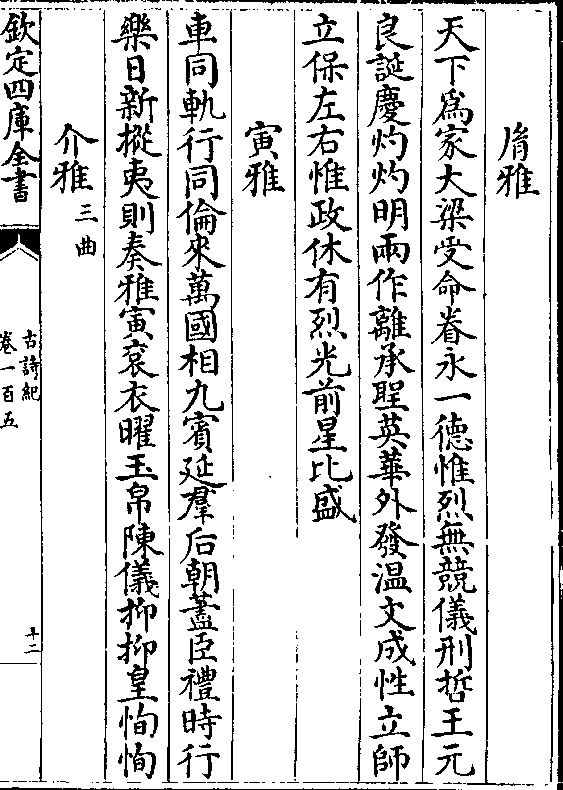 胤雅
天下爲家大梁受命眷永一德惟烈無競儀刑哲王元
良誕慶灼灼明兩作離承聖英華外發温文成性立師
立保左右惟政休有烈光前星比盛
寅雅
車同軌行同倫來萬國相九賓延羣后朝藎臣禮時行
樂日新摐夷則奏雅寅衮衣曜玉帛陳儀抑抑皇恂恂
介雅三曲
欽定四庫全書
古詩紀
卷一百五
十二